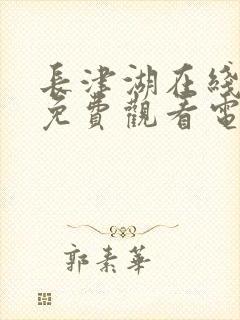 長津湖在綫
免費觀看電
郭素華